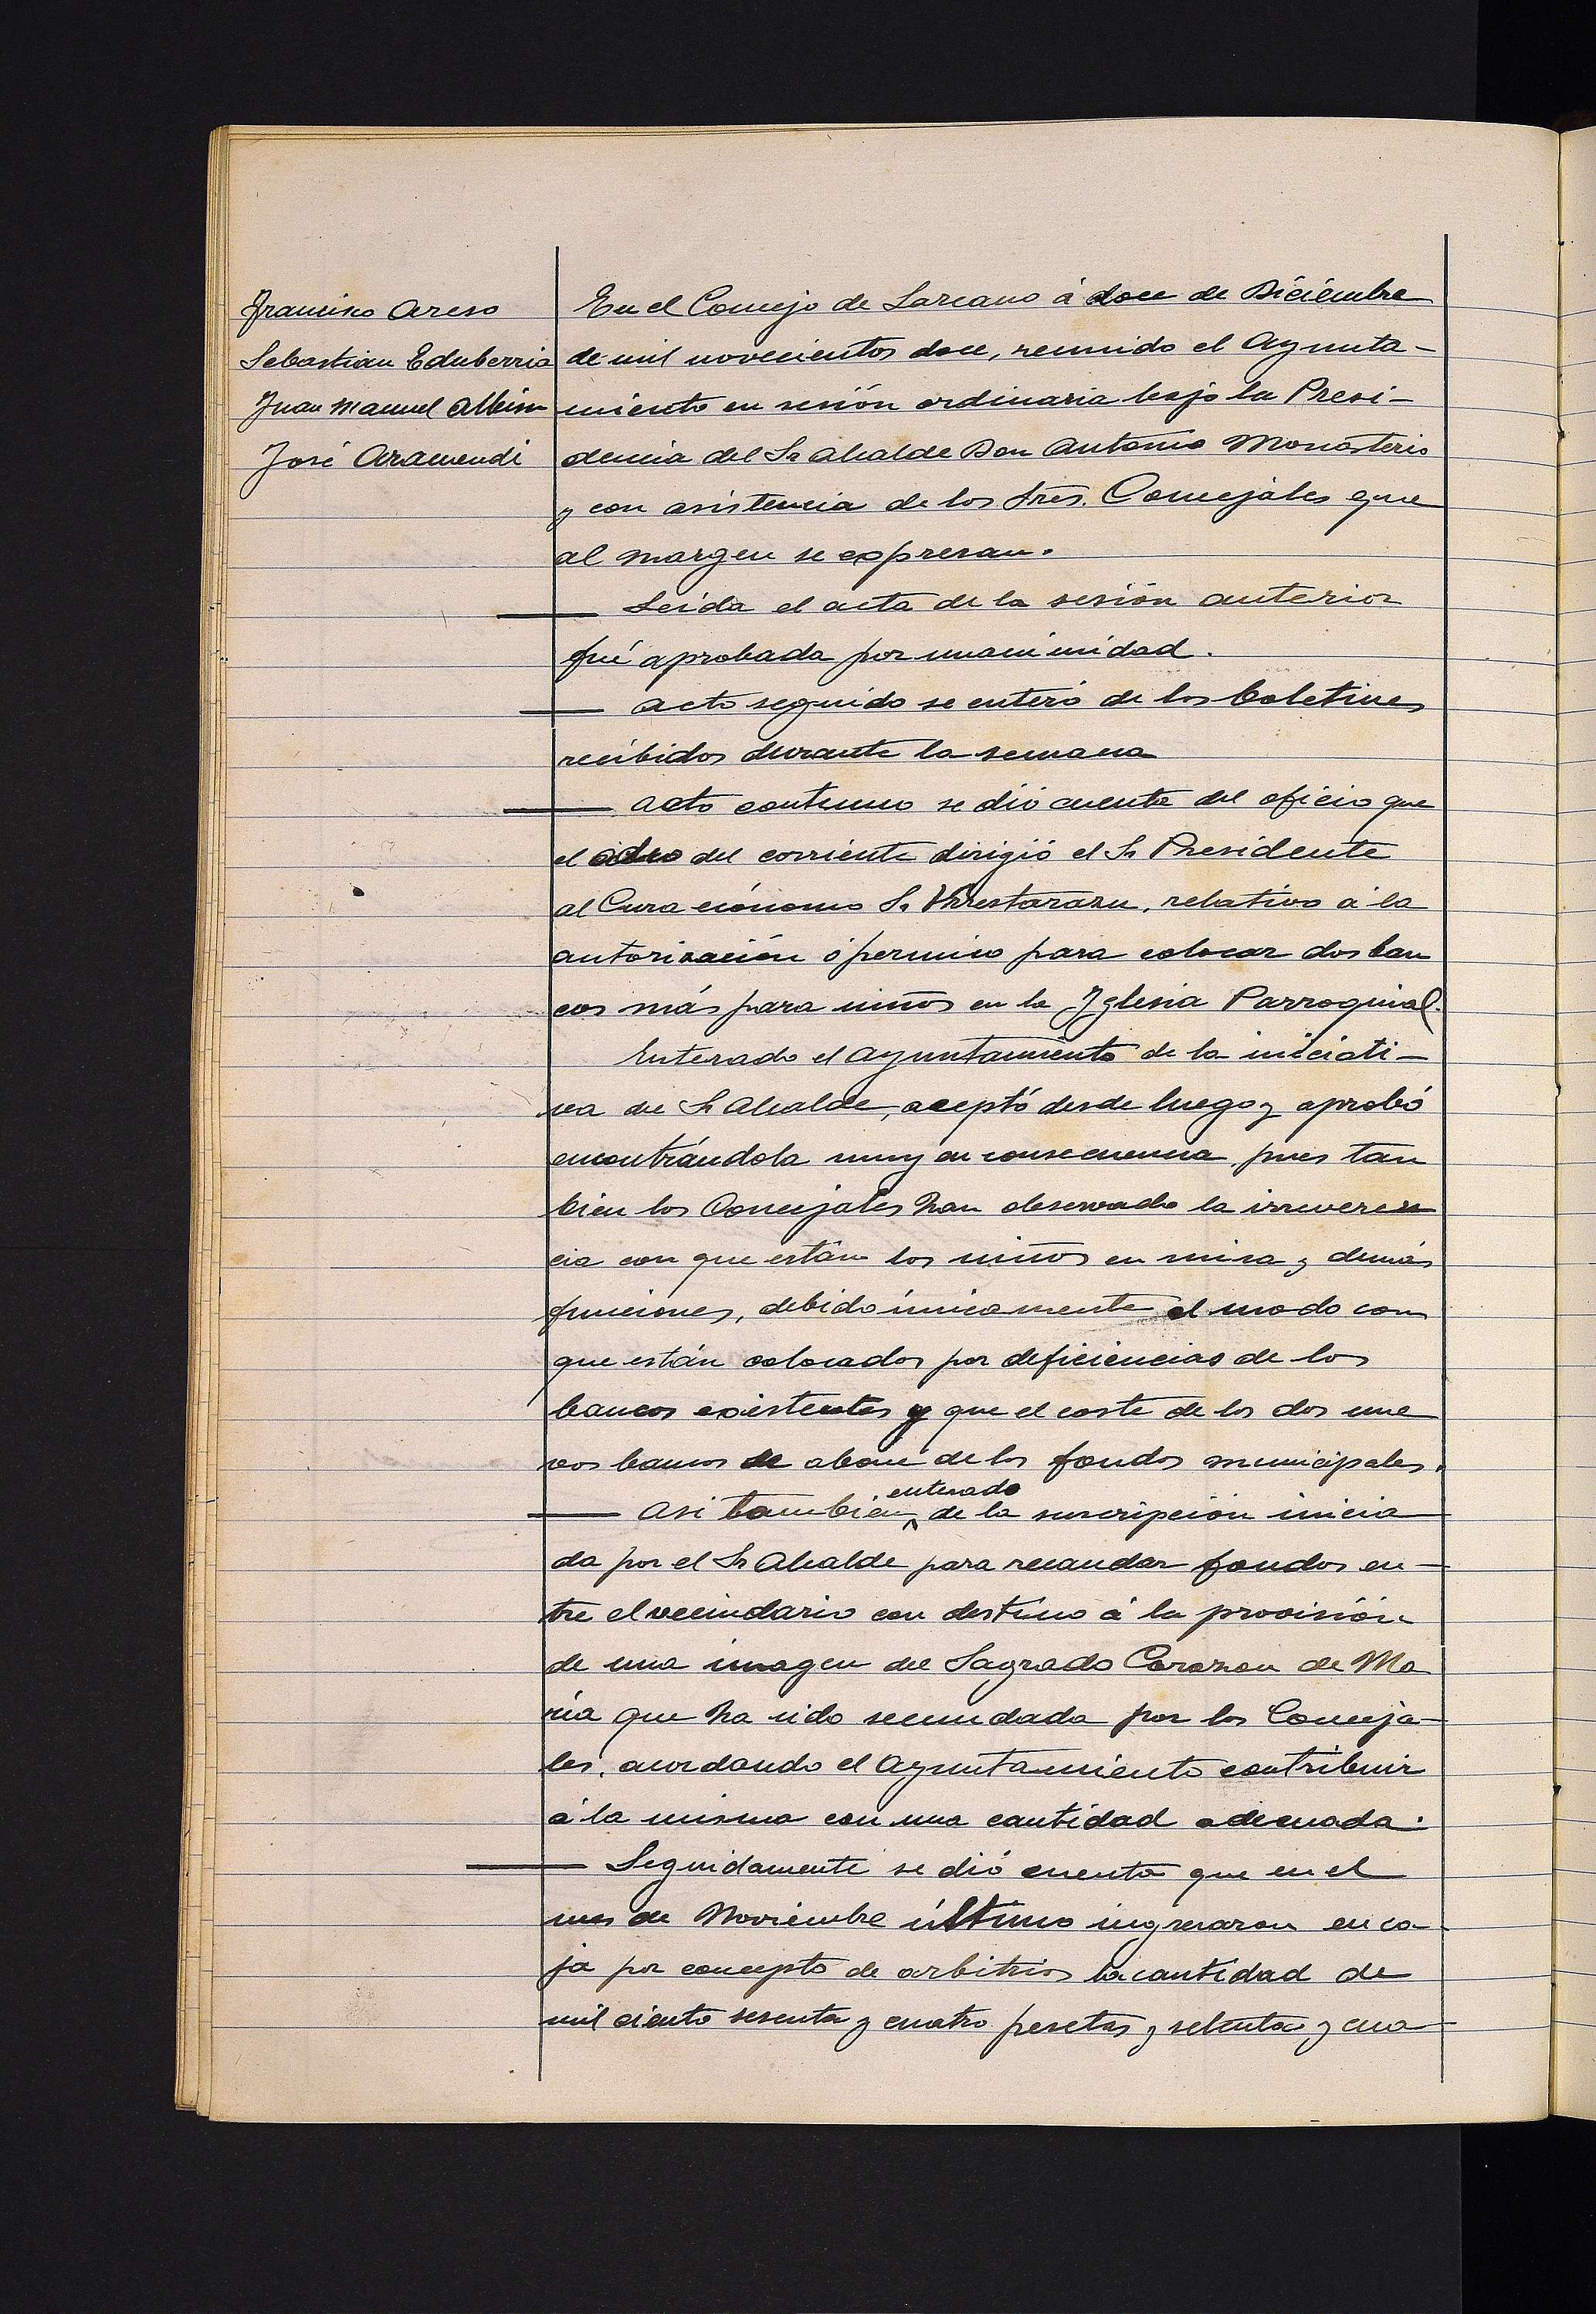 Francisco Areso
Sebastian Echeberria
Juan Manuel Albisu
José Aramendi
En el Concejo de Lazcano á doce de Diciembre
de mil novecientos doce, reunido el Ayunta-
miento en sesión ordinaria bajo la Presi-
dencia del Sr Alcalde Don Antonio Monasterio
y con asistencia de los Sres. Concejales que
al margen se expresan.
— Leida el acta de la sesión anterior
fué aprobada por unanimidad.
— Acto seguido se enteró de los boletines
recibidos durante la semana
— Acto continuo se dió cuenta del oficio que
el ocho del corriente dirigió el Sr Presidente
al Cura ecónomo Sr Urrestarazu, relativo á la
autorización ó permiso para colocar dos ban
cos más para niños en la Yglesia Parroquial.
Enterado el Ayuntamiento de la iniciati-
va de Sr Alcalde, aceptó desde luego y aprobó
encontrándola muy en consecuencia, pues tan
bien los Concejales han observado la irreveren
cia con que están los niños en misa y demás
funciones, debido únicamente al modo con
que están colocados por deficiencias de los
bancos existentes y que el coste de los dos nue
vos bancos se abone de los fondos municipales.
— Asi tambien enterado de la suscripción inicia
da por el Sr Alcalde para recaudar fondos en-
tre el vecindario con destino á la provisión
de una imagen del Sagrado Corazon de Ma
ria que ha sido secundada por los Conceja-
les, acordando el Ayuntamiento contribuir
á la misma con una cantidad adecuada.
— Seguidamente se dió cuenta que en el
mes de Noviembre último ingresaron en ca-
ja por concepto de arbitrios la cantidad de
mil ciento sesenta y cuatro pesetas y setenta y cua